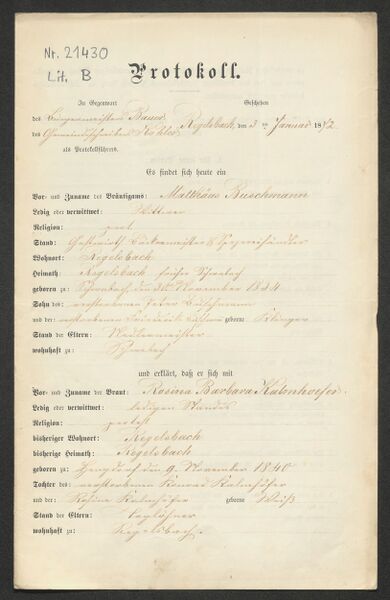 Nr. 21430
Lit. B
Protokoll.
In Gegenwart Geschehen
des Bürgermeisters Bauer
des Gemeindeschreibers Köhler Regelsbach, den 3ten Januar 1872
als Protokollführers.
Es findet sich heute ein
Vor- und Zuname des Bräutigams: Matthäus Buschmann
Ledig oder verwittwet: Wittwer
Religion: prot.
Stand: Gastwirth Bäckermeister & Spezereihändler
Wohnort: Regelsbach
Heimath: Regelsbach früher Schwabach
geboren zu: Schwabach den November 1834
Sohn des: verstorbenen Peter Buschmann
und der: verstorbenen geborene
Stand der Eltern:
wohnhaft zu: Schwabach
und erklärt, daß er sich mit
Vor- und Zuname der Braut: Rosina Barbara Kalmhoefer
Ledig oder verwittwet: ledigen Standes
Religion: protest
bisheriger Wohnort: Regelsbach
bisherige Heimath: Regelsbach
geboren zu: den 9. November 1840
Tochter des: verstorbenen Konrad Kalmhöfer
und der: Rosina Kalmhöfer geborene Weiß
Stand der Eltern: Taglöhner
wohnhaft zu: Regelsbach.